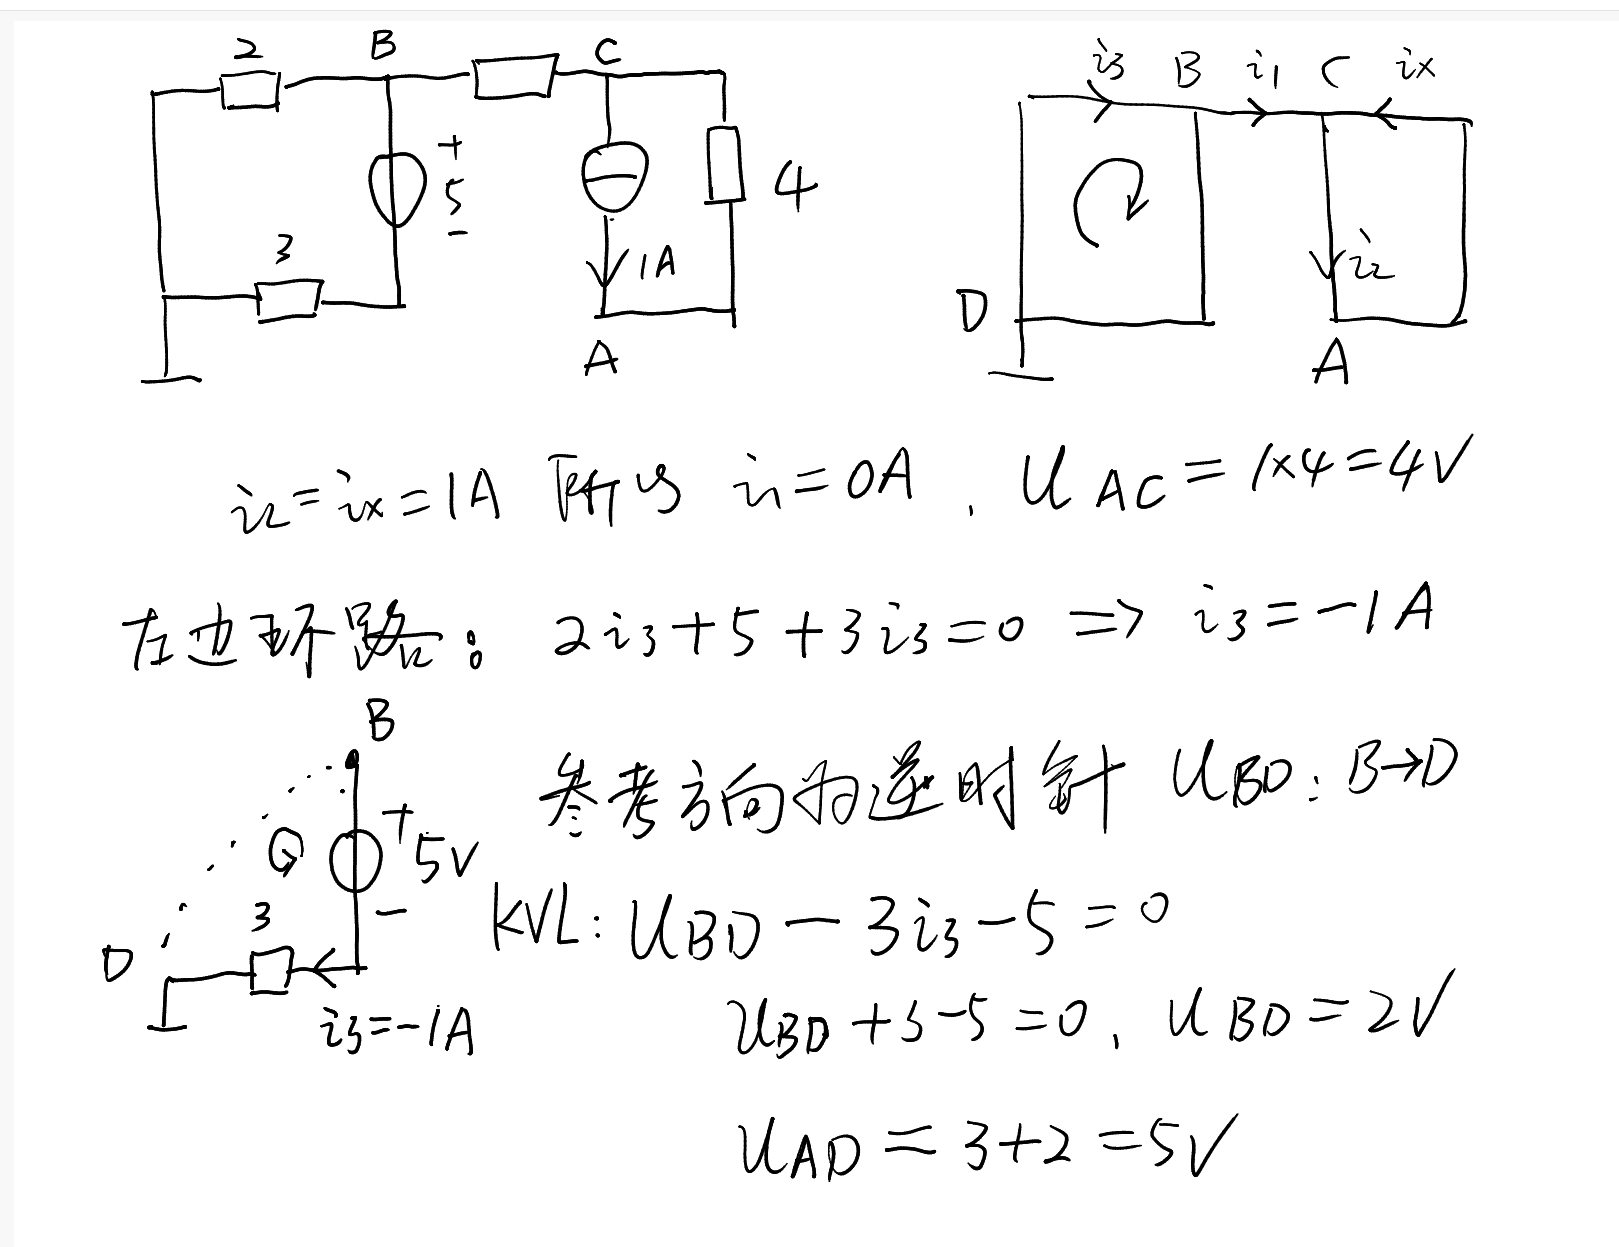 2 B C
+ 5 - 4
3 1A
A
i3 B i1 C ix
i2
D
A
i2=ix=1A 所以 i1=0A, UAC=1×4=4V
左边环路: 2i3+5+3i3=0 => i3=-1A
B
参考方向为逆时针 UBD: B→D
+ 5V -
3
D
i3=-1A
KVL: UBD-3i3-5=0
UBD+3-5=0, UBD=2V
UAD=3+2=5V